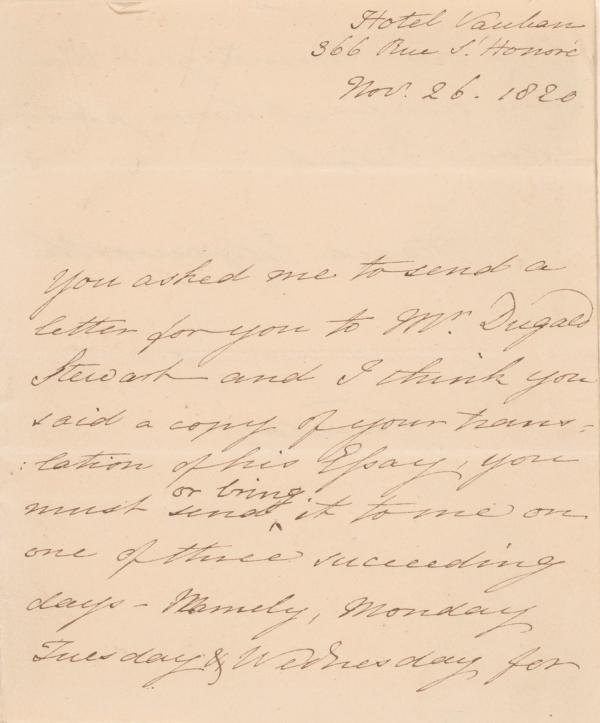 Hotel Vauban
366 Rue S. Honoré
Nov. 26. 1820
You asked me to send a
letter for you to Mr. Dugald
Stewart and I think you
said a copy of your trans=
:lation of his Essay, you
or bring
must send it to me on
one of three succeeding
days - Namely, Monday
Tuesday & Wednesday for